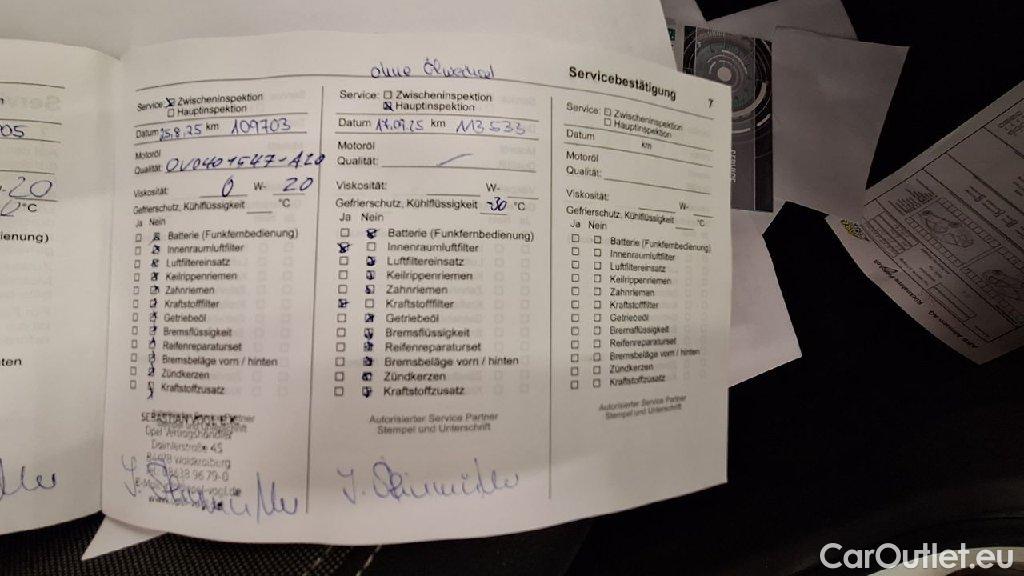 ohne Ölwechsel
Servicebestätigung 7
Service: Zwischeninspektion
Hauptinspektion
Datum 25.8.25 km 109703
Motoröl
Qualität: OV0401547-A20
Viskosität: 0 W- 20
Gefrierschutz, Kühlflüssigkeit °C
Ja Nein
Batterie (Funkfernbedienung)
Innenraumluftfilter
Luftfiltereinsatz
Keilrippenriemen
Zahnriemen
Kraftstofffilter
Getriebeöl
Bremsflüssigkeit
Reifenreparaturset
Bremsbeläge vorn / hinten
Zündkerzen
Kraftstoffzusatz
Opel Vertragshändler
Daimlerstraße 45
Service: Zwischeninspektion
Hauptinspektion
Datum 17.09.25 km 113533
Motoröl
Qualität: –
Viskosität: W-
Gefrierschutz, Kühlflüssigkeit -36 °C
Ja Nein
Batterie (Funkfernbedienung)
Innenraumluftfilter
Luftfiltereinsatz
Keilrippenriemen
Zahnriemen
Kraftstofffilter
Getriebeöl
Bremsflüssigkeit
Reifenreparaturset
Bremsbeläge vorn / hinten
Zündkerzen
Kraftstoffzusatz
Autorisierter Service Partner
Stempel und Unterschrift
Service: Zwischeninspektion
Hauptinspektion
Datum km
Motoröl
Qualität:
Viskosität: W-
Gefrierschutz, Kühlflüssigkeit °C
Ja Nein
Batterie (Funkfernbedienung)
Innenraumluftfilter
Luftfiltereinsatz
Keilrippenriemen
Zahnriemen
Kraftstofffilter
Getriebeöl
Bremsflüssigkeit
Reifenreparaturset
Bremsbeläge vorn / hinten
Zündkerzen
Kraftstoffzusatz
Autorisierter Service Partner
Stempel und Unterschrift
CarOutlet.eu